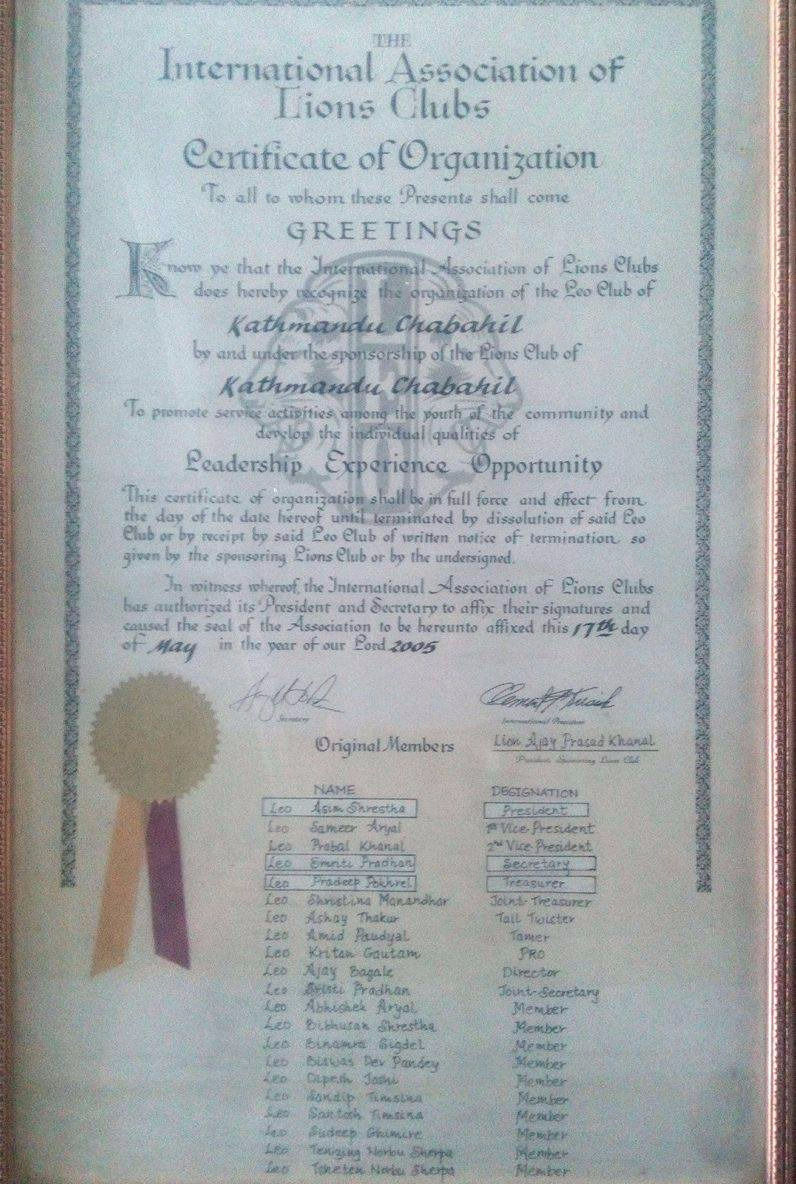 THE
International Association of
Lions Clubs
Certificate of Organization
To all to whom these Presents shall come
GREETINGS
Know ye that the International Association of Lions Clubs
does hereby recognize the organization of the Leo Club of
Kathmandu Chabahil
by and under the sponsorship of the Lions Club of
Kathmandu Chabahil
To promote service activities among the youth of the community and
develop the individual qualities of
Leadership Experience Opportunity
This certificate of organization shall be in full force and effect from
the day of the date hereof until terminated by dissolution of said Leo
Club or by receipt by said Leo Club of written notice of termination so
given by the sponsoring Lions Club or by the undersigned.
In witness whereof, the International Association of Lions Clubs
has authorized its President and Secretary to affix their signatures and
caused the seal of the Association to be hereunto affixed this 17th day
of May in the year of our Lord 2005
Secretary International President
Original Members Lion Ajay Prasad Khanal
President Sponsoring Lions Club
NAME DESIGNATION
Leo Asim Shrestha President
Leo Sameer Aryal 1st Vice President
Leo Prabal Khanal 2nd Vice President
Leo Smriti Pradhan Secretary
Leo Pradeep Pokhrel Treasurer
Leo Shristina Manandhar Joint-Treasurer
Leo Ashay Thakur Tail Twister
Leo Amid Paudyal Tamer
Leo Kritan Gautam PRO
Leo Ajay Bagale Director
Leo Sristi Pradhan Joint-Secretary
Leo Abhishek Aryal Member
Leo Bibhusan Shrestha Member
Leo Binamra Sigdel Member
Leo Biswas Dev Pandey Member
Leo Dipesh Joshi Member
Leo Sandip Timsina Member
Leo Santosh Timsina Member
Leo Sudeep Ghimire Member
Leo Tenizing Norbu Sherpa Member
Leo Tsheten Norbu Sherpa Member